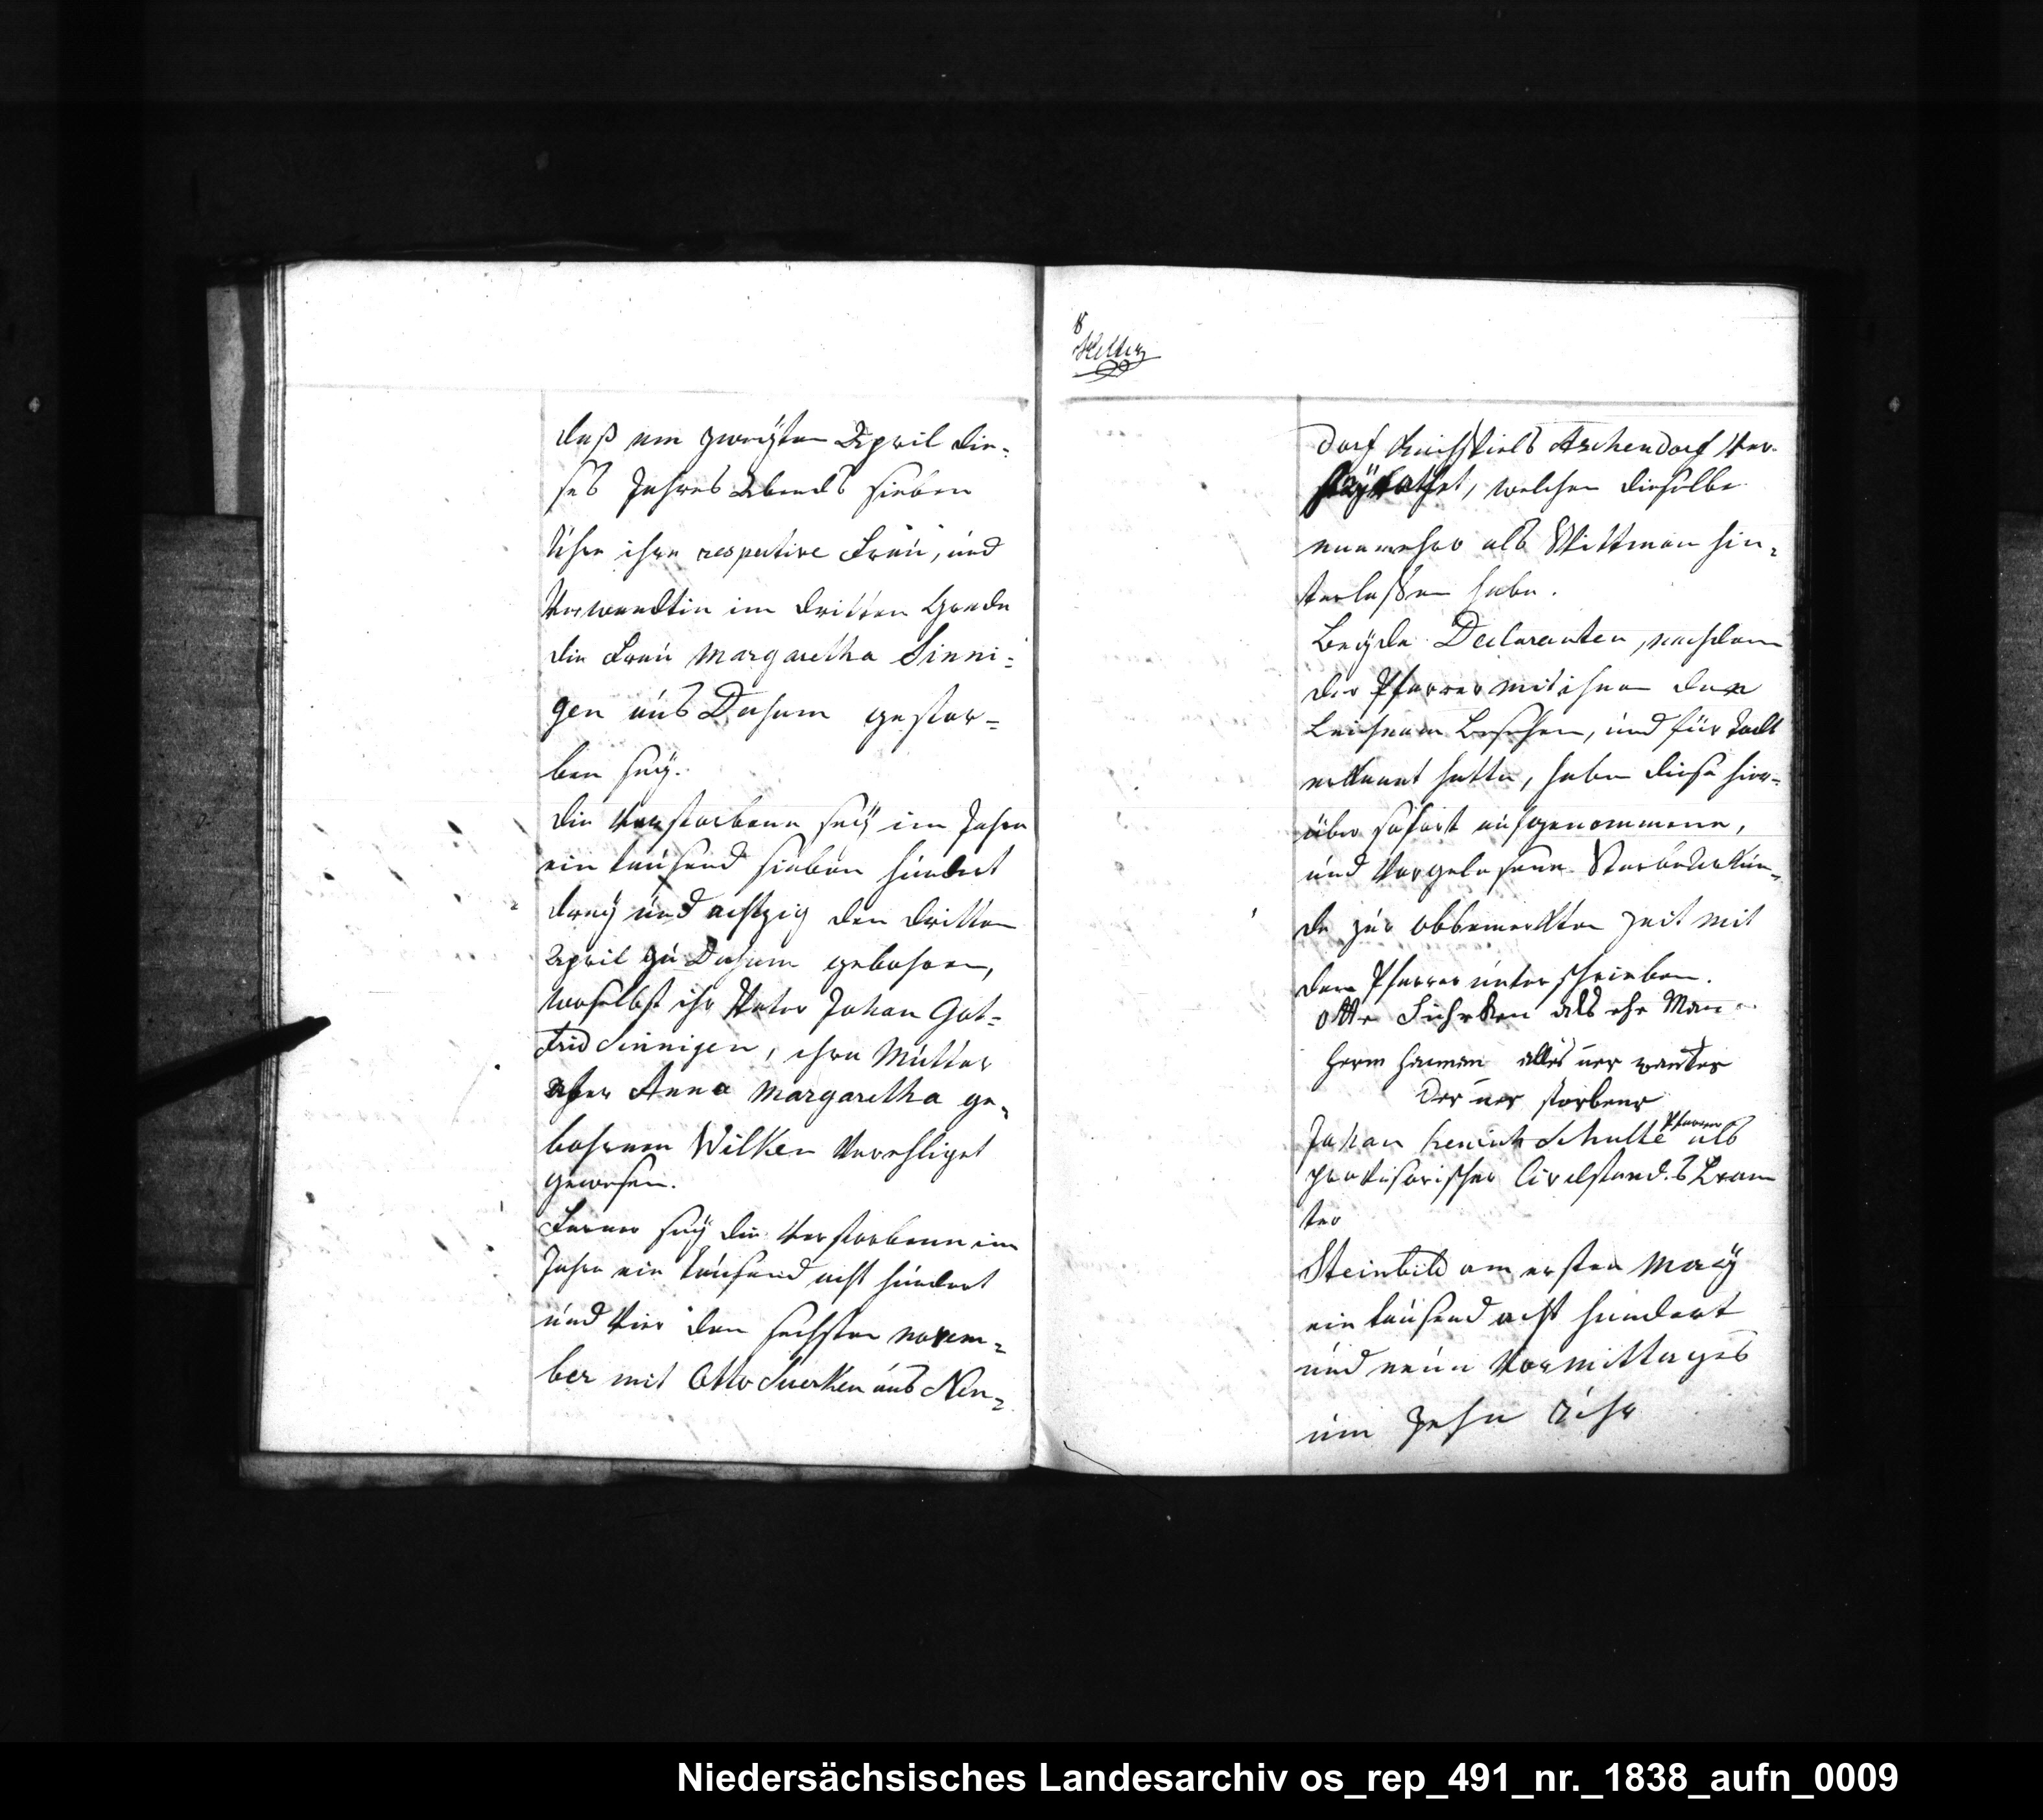 daß am zweyten April die-
ses Jahres Abends sieben
Uhr ihre respective Frau, und
Verwandtin im dritten Grade
die Frau Margaretha Sinni-
gen aus Dahum gestor-
ben sey.
die Verstorbene sey im Jahre
ein tausend sieben hundert
drey und achtzig den dritten
April zu Dahum gebohren,
woselbst ihr Vater Johan Got-
frid Sinnigen, ihre Mutter
aber Anna Margaretha ge-
bohrnen Wilken verehliget
gewesen.
Ferner sey die Verstorbene im
Jahre ein tausend acht hundert
und vier den sechsten novem-
ber mit Otto aus Nen-
8
dorf Kirchspiels Aschendorf ver-
heyrathet, welchen dieselbe
nunmehro als Wittman hin-
terlaßen habe.
Beyde Declaranten, nachdem
der Pfarrer mit ihnen den
Leichnam besehen, und für todt
erkannt hatte, haben diese hier-
über sofort aufgenommene,
und vorgelesene Sterbeurkun-
de zur obbemerkten Zeit mit
dem Pfarrer unterschrieben.
otto als ehr Man
herm alles ver wanter
der ver storbene
Johan henrich Schulte Pfarrer als
provisorischer Civilstands Beam
ter
Steinbild am ersten May
ein tausend acht hundert
und neun Vormittages
um zehn Uhr
Niedersächsisches Landesarchiv os_rep_491_nr._1838_aufn_0009